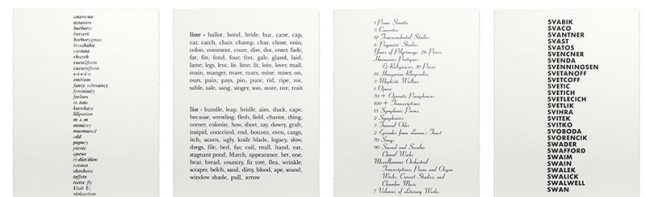 assassin
barbaric
berserk
borborygmus
brouhaha
cantata
church
cuculiform
e-i-e-i-o
emblem
fancy schmancy
femininity
forlorn
in toto
kamikaze
lilliputian
m & m
mimicry
murmured
odd
papacy
picnic
queue
rococo
taffeta
tsetse fly
Utah U.
vivisection
liste - ballot, bond, bride, but, cane, cap,
car, catch, chair, champ, chat, chose, coin,
colon, comment, court, dire, dot, entrain, essay,
far, fin, fond, four, fret, gale, gland, laid,
lame, legs, lent, lie, lime, lit, loin, lover, mail,
main, manger, mare, mars, mine, miser, on,
ours, pain, pays, pin, pour, rid, ripe, rot,
sable, sale, sang, singer, son, store, tire, trait
list - bundle, leap, bridle, aim, duck, cape,
because, wrestling, flesh, field, chariot, thing,
corner, colonist, bow, short, say, dowry, graft,
insipid, concreted, end, bottom, oven, cargo,
itch, acorn, ugly, knife blade, legacy, slow,
dregs, file, bed, far, coil, mall, hand, eat,
stagnant pond, March, appearance, bet, one,
bear, bread, country, fir tree, flea, wrinkle,
scraper, belch, sand, dirty, blood, ape, sound,
window shade, pull, arrow
1 Piano Sonata
3 Concertos
12 Transcendental Studies
6 Paganini Studies
Years of Pilgrimage, 26 Pieces
Harmonies Poétiques
Et Religieuses, 10 Pieces
19 Hungarian Rhapsodies
3 Mephisto Waltzes
1 Opera
70 + Operatic Paraphrases
100 + Transcriptions
13 Symphonic Poems
2 Symphonies
3 Funeral Odes
2 Episodes from Lenau's Faust
70 Songs
90 Sacred and Secular
Choral Works
Miscellaneous Orchestral
Transcriptions, Piano and Organ
Works, Concert Studies, and
Chamber Music
7 Volumes of Literary Works
SVABIK
SVACO
SVANTNER
SVAST
SVATOS
SVENCER
SVENDA
SVENNINGSEN
SVETANOFF
SVETCOFF
SVETIC
SVETICH
SVETLECICH
SVETLIK
SVIHRA
SVITEK
SVITKO
SVOBODA
SVORENCIK
SWADER
SWAFFORD
SWAIM
SWAIN
SWALEK
SWALICK
SWALWELL
SWAN